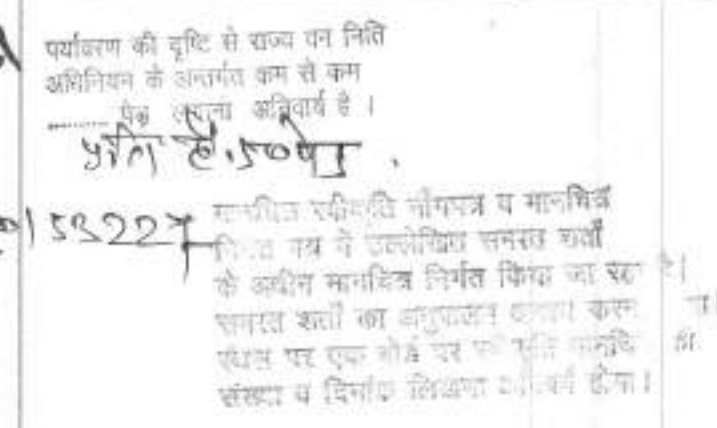 पर्यावरण की दृष्टि से राज्य वन निति
अधिनियम के अन्तर्गत कम से कम
........ पेड़ लगाना अनिवार्य है ।
प्रति है. 50 पेड़ .
53227
मानचित्र स्वीकृति माँगपत्र व मानचित्र
पत्र में उल्लेखित समस्त शर्तों
के अधीन मानचित्र निर्गत किया जा रहा है।
समस्त शर्तों का अनुपालन करना
स्थल पर एक बोर्ड पर
संख्या व दिनाँक लिखना अनिवार्य होगा।